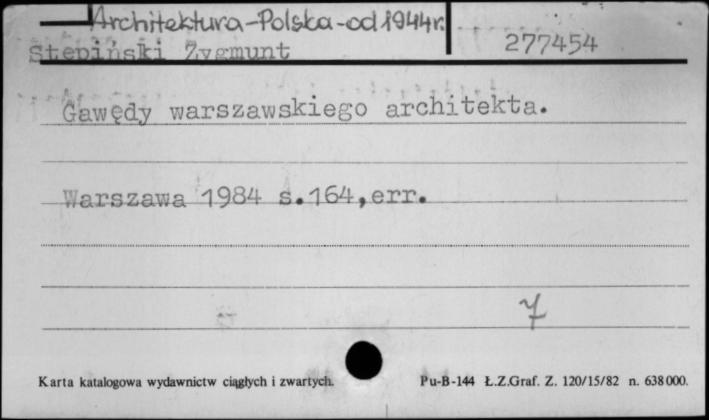 Architektura-Polska-od 1944r.
Stępiński Zygmunt 277454
Gawędy warszawskiego architekta.
Warszawa 1984 s.164,err.
7
Karta katalogowa wydawnictw ciągłych i zwartych. Pu-B-144 Ł.Z.Graf. Z. 120/15/82 n. 638000.